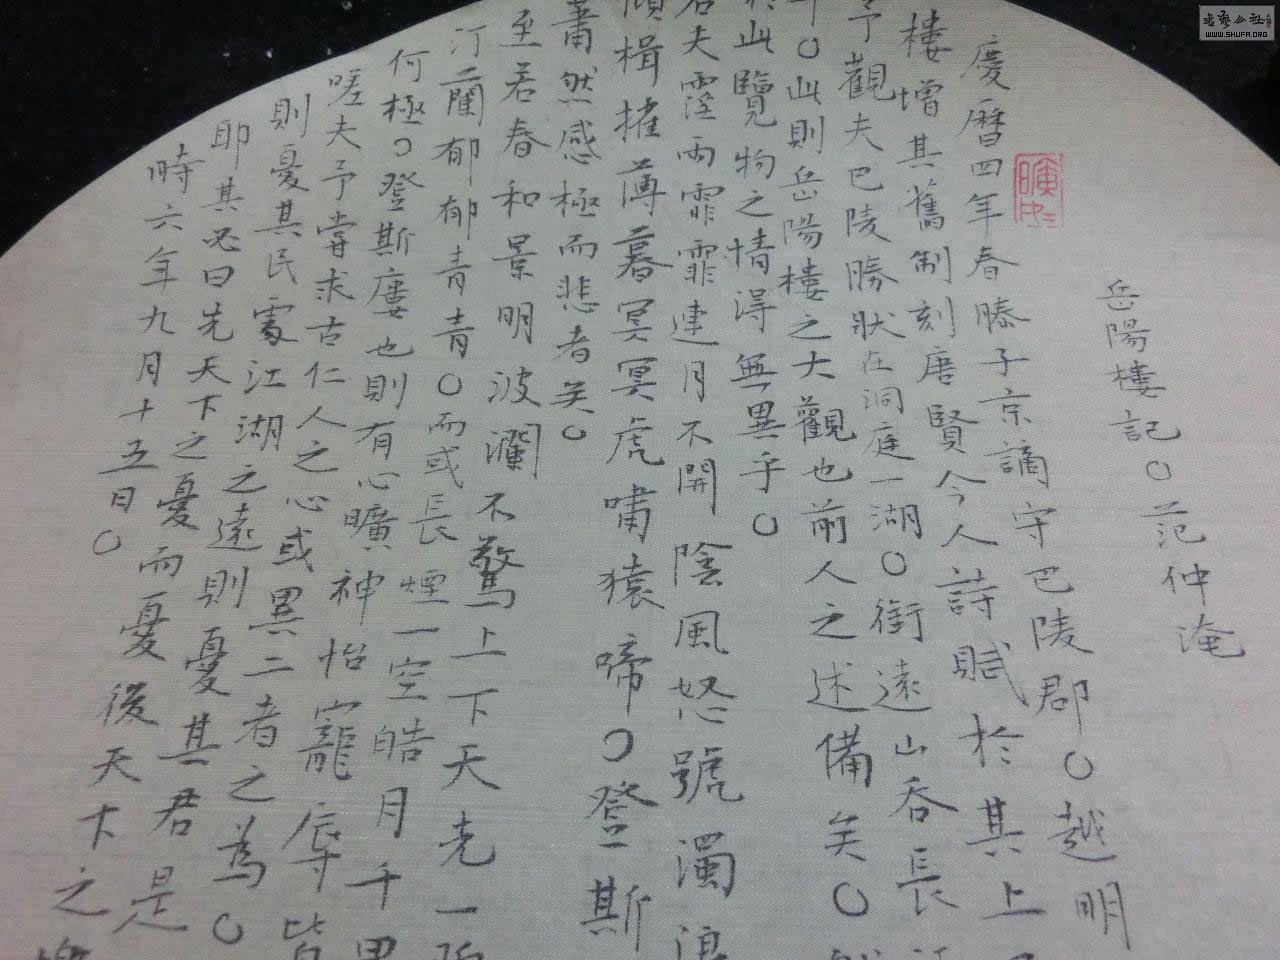 岳陽樓記○范仲淹
慶曆四年春滕子京謫守巴陵郡○越明
樓增其舊制刻唐賢今人詩賦於其上
予觀夫巴陵勝狀在洞庭一湖○銜遠山吞長
○此則岳陽樓之大觀也前人之述備矣○
於此覽物之情得無異乎○
若夫霪雨霏霏連月不開陰風怒號濁浪
傾楫摧薄暮冥冥虎嘯猿啼○登斯
蕭然感極而悲者矣○
至若春和景明波瀾不驚上下天光一
汀蘭郁郁青青○而或長煙一空皓月千里
何極○登斯廔也則有心曠神怡寵辱皆
嗟夫予嘗求古仁人之心或異二者之為○
則憂其民處江湖之遠則憂其君是
耶其必曰先天下之憂而憂後天下之樂
時六年九月十五日○
書藝公社
WWW.SHUFA.ORG